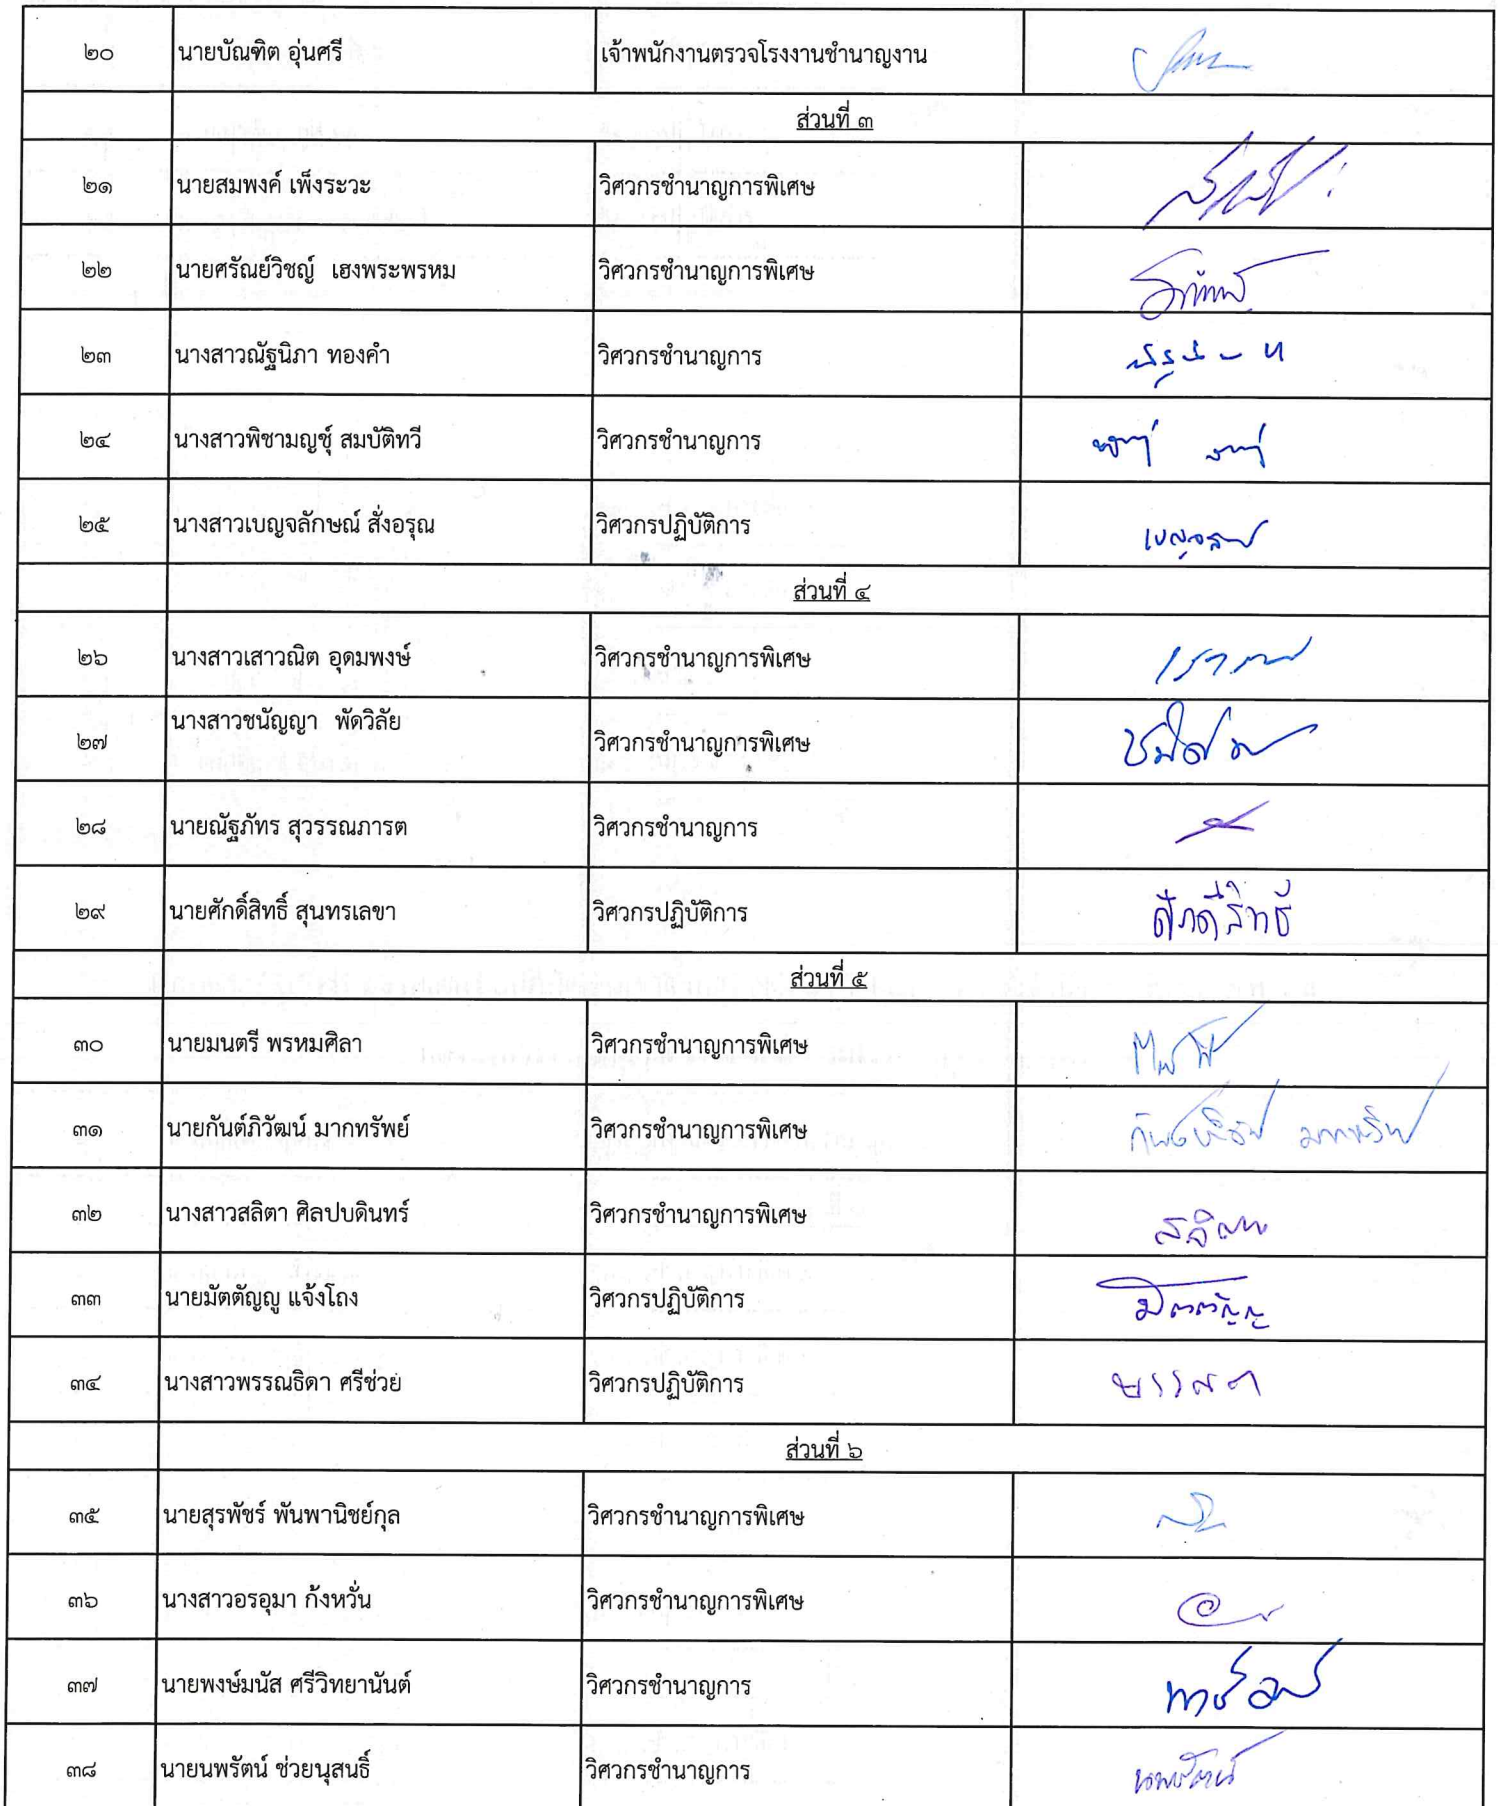 ๒๐ นายบัณฑิต อุ่นศรี เจ้าพนักงานตรวจโรงงานชำนาญงาน
ส่วนที่ ๓
๒๑ นายสมพงค์ เพ็งระวะ วิศวกรชำนาญการพิเศษ
๒๒ นายศรัณย์วิชญ์ เฮงพระพรหม วิศวกรชำนาญการพิเศษ
๒๓ นางสาวณัฐนิภา ทองคำ วิศวกรชำนาญการ
๒๔ นางสาวพิชามญชุ์ สมบัติทวี วิศวกรชำนาญการ
๒๕ นางสาวเบญจลักษณ์ สั่งอรุณ วิศวกรปฏิบัติการ
ส่วนที่ ๔
๒๖ นางสาวเสาวณิต อุดมพงษ์ วิศวกรชำนาญการพิเศษ
๒๗ นางสาวชนัญญา พัดวิลัย วิศวกรชำนาญการพิเศษ
๒๘ นายณัฐภัทร สุวรรณภารต วิศวกรชำนาญการ
๒๙ นายศักดิ์สิทธิ์ สุนทรเลขา วิศวกรปฏิบัติการ ศักดิ์สิทธิ์
ส่วนที่ ๕
๓๐ นายมนตรี พรหมศิลา วิศวกรชำนาญการพิเศษ
๓๑ นายกันต์ภิวัฒน์ มากทรัพย์ วิศวกรชำนาญการพิเศษ
๓๒ นางสาวสลิตา ศิลปบดินทร์ วิศวกรชำนาญการพิเศษ
๓๓ นายมัตตัญญู แจ้งโถง วิศวกรปฏิบัติการ มัตตัญญู
๓๔ นางสาวพรรณธิดา ศรีช่วย วิศวกรปฏิบัติการ
ส่วนที่ ๖
๓๕ นายสุรพัชร์ พันพานิชย์กุล วิศวกรชำนาญการพิเศษ
๓๖ นางสาวอรอุมา ก้งหวั่น วิศวกรชำนาญการพิเศษ
๓๗ นายพงษ์มนัส ศรีวิทยานันต์ วิศวกรชำนาญการ
๓๘ นายนพรัตน์ ช่วยนุสนธิ์ วิศวกรชำนาญการ นพรัตน์